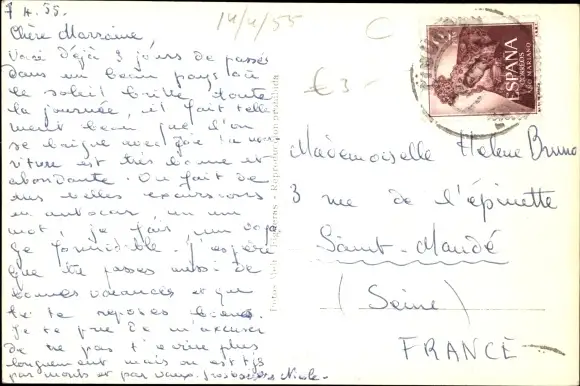 7 4. 55.
Chère Marraine,
Voici déjà 3 jours de passés
dans un beau pays où
le soleil brille toute
la journée, il fait telle
ment beau que l'on
se baigne avec joie la nour
riture est très bonne et
abondante. On fait de
très belles excursions
en autocar, en un
mot, je fais un voya
ge formidable. J'espère
que tu passes aussi de
bonnes vacances et que
tu te reposes bien.
Je te prie de m'excuser
de ne pas t'écrire plus
longuement mais on est tjs
par monts et par vaux. Nicole-
14/4/55
C
€ 3-
ESPAÑA
CORREOS
AÑO MARIANO
Mademoiselle Hélène Bruno
3 rue de l'épinette
Saint-Mandé
(Seine)
FRANCE